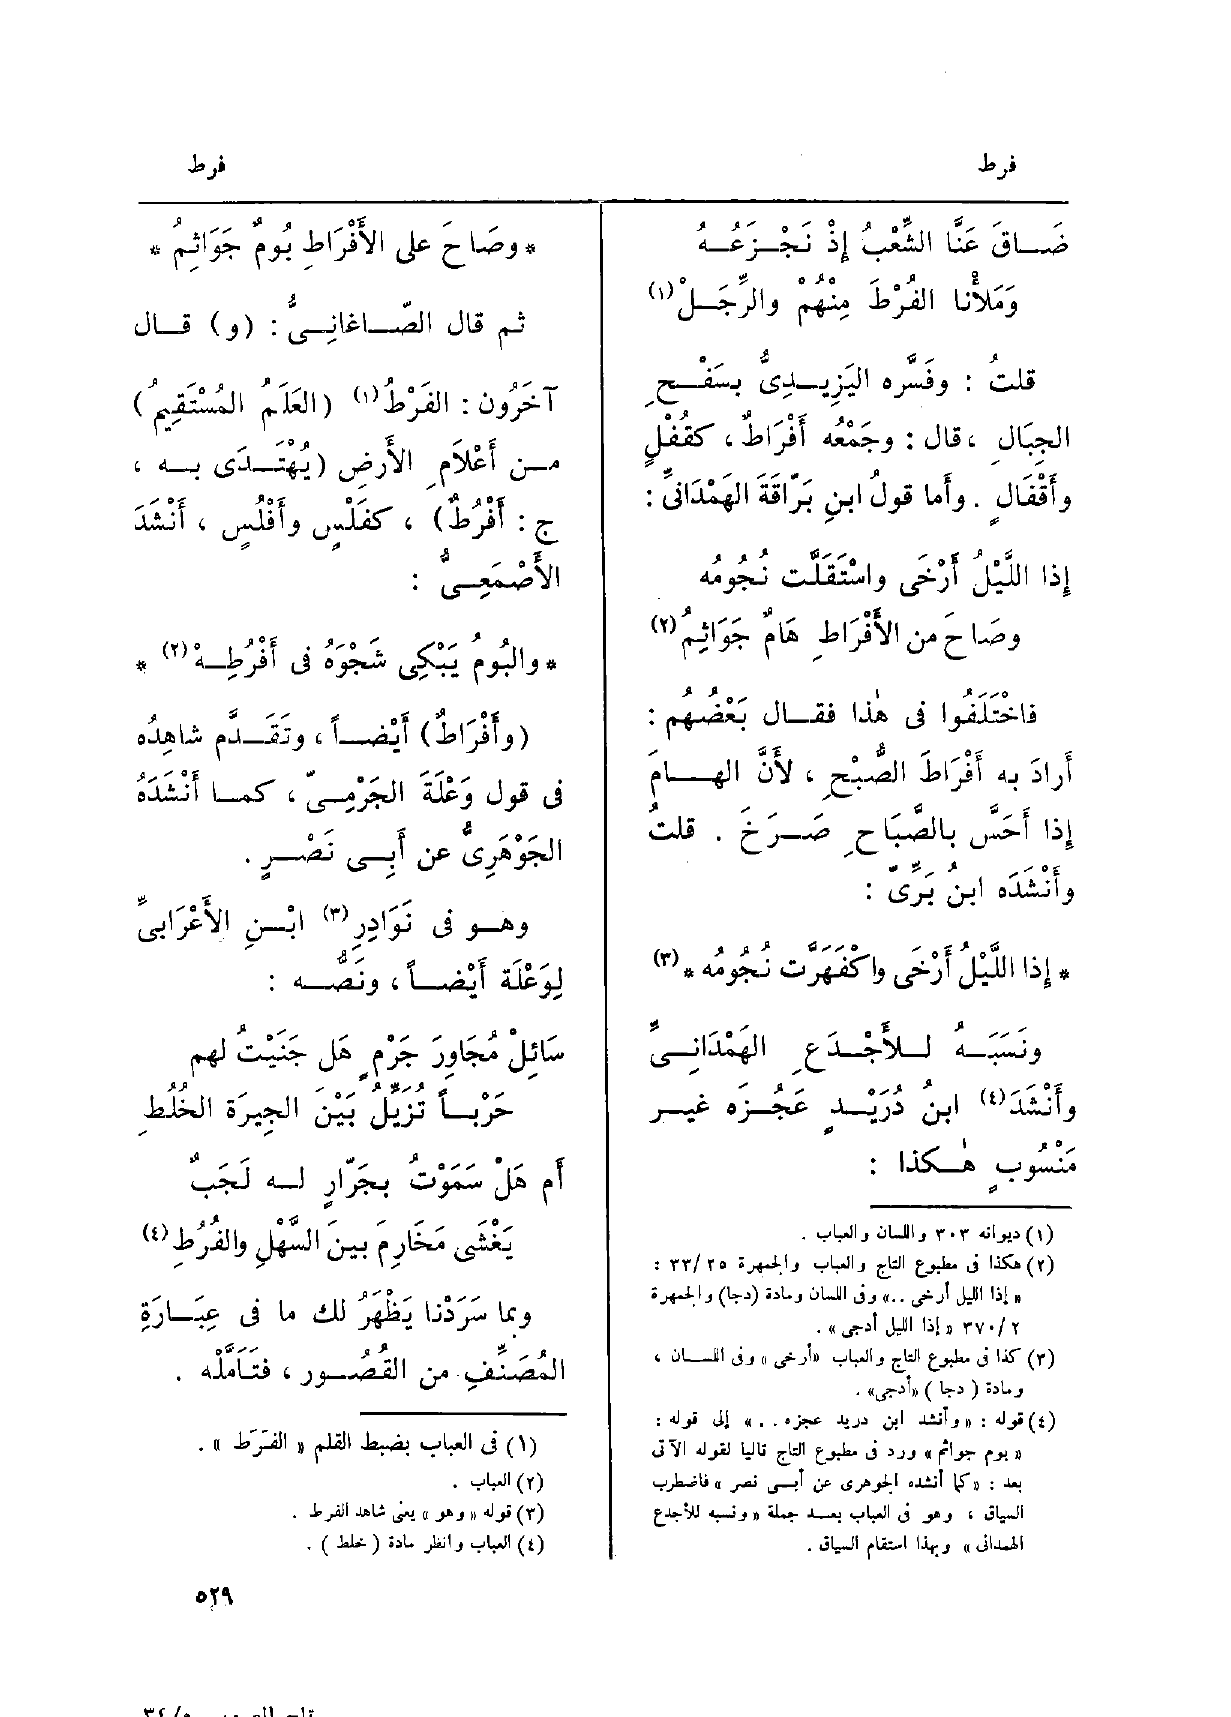 فرط
فرط
ضَاقَ عَنَّا الشِّعْبُ إِذْ نَجْزَعُهُ
وَمَلأْنا الفُرْطَ مِنْهُمْ والرِّجَلْ(١)
قلتُ : وفَسَّره اليَزِيدِىُّ بسَفْحِ
الجِبَالِ ، قال : وجَمْعُه أَفْرَاطٌ ، كقُفْلٍ
وأَقْفَالٍ . وأَما قولُ ابنِ بَرّاقَةَ الهَمْدَانىِّ :
إِذا اللَّيْلُ أَرْخَى واسْتَقَلَّت نُجُومُه
وصَاحَ من الأَفْرَاطِ هَامٌ جَوَاثِمُ(٢)
فاخْتَلَفُوا فى هٰذا فقال بَعْضُهم :
أَرادَ به أَفْرَاطَ الصُّبْحِ ، لأَنَّ الهامَ
إِذا أَحَسَّ بالصَّبَاحِ صَرَخَ . قلتُ
وأَنْشَدَه ابنُ بَرِّىّ :
* إِذا اللَّيْلُ أَرْخَى واكْفَهَرَّت نُجُومُه *(٣)
ونَسَبَهُ لِلأَجْدَعِ الهَمْدَانِىِّ
وأَنْشَدَ(٤) ابنُ دُرَيْدٍ عَجُزَه غير
مَنْسُوبٍ هٰكذا :
(١) ديوانه ٣٠٣ واللسان والعباب .
(٢) هكذا فى مطبوع التاج والعباب والجمهرة ٣٣/٢٥ :
« إذا الليل أرخى .. » وفى اللسان ومادة (دجا) والجمهرة
٣٧٠/٢ « إذا الليل أدجى » .
(٣) كذا فى مطبوع التاج والعباب «أرخى» وفى اللسان ،
ومادة ( دجا ) «أدجى» .
(٤) قوله : « وأنشد ابن دريد عجزه . . » إلى قوله :
« بوم جواثم » ورد فى مطبوع التاج تاليا لقوله الآتى
بعد : « كما أنشده الجوهرى عن أبى نصر » فاضطرب
السياق ، وهو فى العباب بعد جملة « ونسبه للأجدع
الهمدانى » وبهذا استقام السياق .
* وصَاحَ على الأَفْرَاطِ بُومٌ جَوَاثِمُ *
ثم قال الصّاغانِىُّ : (و) قال
آخَرُون : الفَرْطُ(١) (العَلَمُ المُسْتَقِيمُ)
من أَعْلَامِ الأَرضِ (يُهْتَدَى به ،
ج : أَفْرُطٌ) ، كفَلْسٍ وأَفْلُسٍ ، أَنْشَدَ
الأَصْمَعِىُّ :
* والبُومُ يَبْكِى شَجْوَهُ فى أَفْرُطِهْ(٢) *
(وأَفْرَاطٌ) أَيْضاً ، وتَقَدَّم شاهِدُه
فى قول وَعْلَةَ الجَرْمِىّ ، كما أَنْشَدَهُ
الجَوْهَرِىُّ عن أَبِى نَصْرٍ .
وهو فى نَوَادِرِ(٣) ابْنِ الأَعْرَابىِّ
لِوَعْلَة أَيْضاً ، ونَصُّه :
سَائِلْ مُجَاوِرَ جَرْمٍ هَل جَنَيْتُ لهم
حَرْباً تُزَيِّلُ بَيْنَ الجِيرَة الخُلُطِ
أَم هَلْ سَمَوْتُ بجَرّارٍ له لَجَبٌ
يَغْشَى مَخَارِمَ بينَ السَّهْلِ والفُرُطِ(٤)
وبما سَرَدْنا يَظْهَرُ لك ما فى عِبَارَةِ
المُصَنِّفِ من القُصُور ، فتَأَمَّلْه .
(١) فى العباب بضبط القلم « الفَرَط » .
(٢) العباب .
(٣) قوله « وهو » يعنى شاهد الفرط .
(٤) العباب وانظر مادة ( خلط ) .
٥٢٩